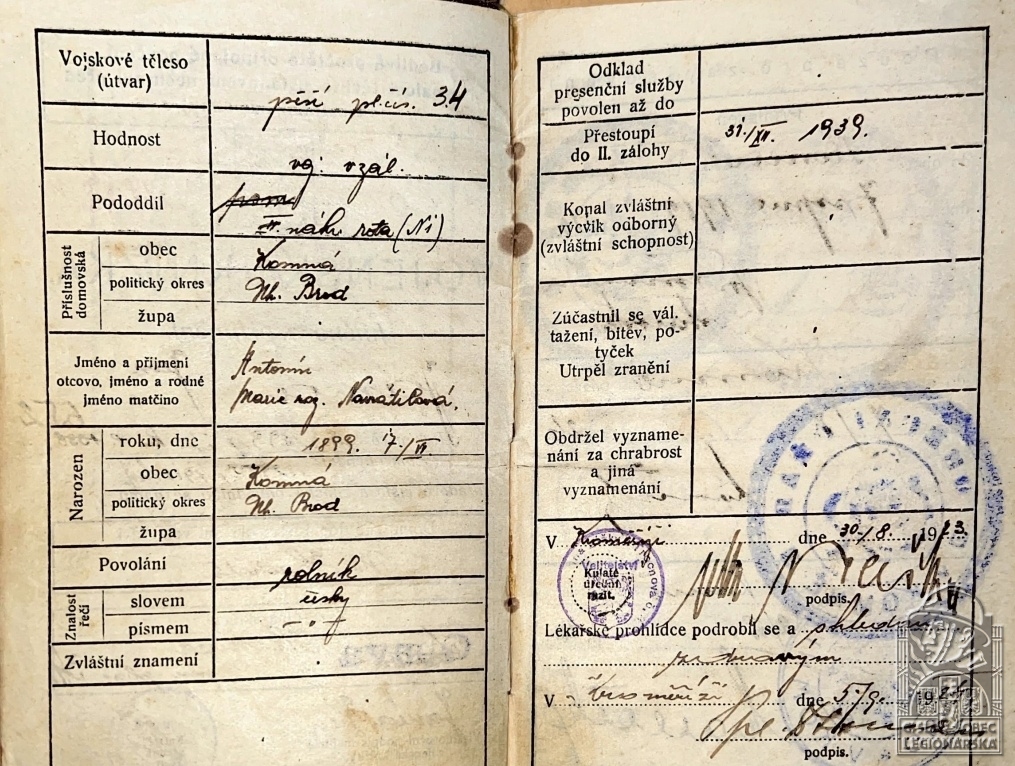 Vojskové těleso
(útvar)
pěší pl. čís. 34
Hodnost
voj. v zál.
Pododdíl
náhr. rota (N1)
Příslušnost
domovská
obec
Komná
politický okres
Uh. Brod
župa
Jméno a přijmení
otcovo, jméno a rodné
jméno matčino
Antonín
Marie roz. Navrátilová,
Narozen
roku, dne
1899. 17/VI
obec
Komná
politický okres
Uh. Brod
župa
Povolání
rolník
Znalost
řečí
slovem
česky
písmem
Zvláštní znamení
Odklad
presenční služby
povolen až do
Přestoupí
do II. zálohy
31./XII. 1939.
Konal zvláštní
výcvik odborný
(zvláštní schopnost)
Zúčastnil se vál.
tažení, bitev, po-
tyček
Utrpěl zranění
Obdržel vyzname-
nání za chrabrost
a jiná
vyznamenání
V Kroměříži dne 30./8. 1923.
Velitelství
Kulaté
úřední
razít.
podpis.
Lékařské prohlídce podrobil se a shledán
zdravým
V Kroměříži dne 5/9. 1924
podpis.
ČESKOSLOVENSKÁ OBEC
LEGIONÁŘSKÁ